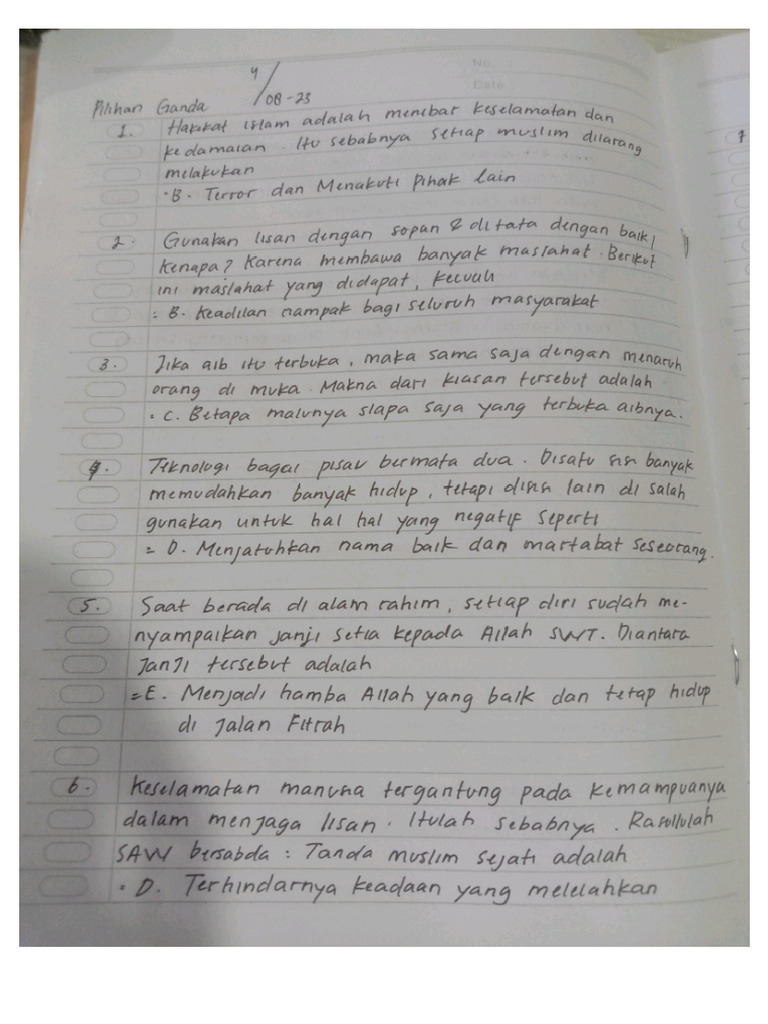 No
Date
4/08-23
Pilihan Ganda
1. Hakikat islam adalah menebar keselamatan dan
kedamaian. Itu sebabnya setiap muslim dilarang
melakukan
·B. Terror dan Menakuti Pihak lain
2. Gunakan lisan dengan sopan & ditata dengan baik,
kenapa? Karena membawa banyak maslahat. Berikut
ini maslahat yang didapat, kecuali
= B. Keadilan nampak bagi seluruh masyarakat
3. Jika aib itu terbuka, maka sama saja dengan menaruh
orang di muka. Makna dari kiasan tersebut adalah
= C. Betapa malunya siapa saja yang terbuka aibnya.
4. Teknologi bagai pisau bermata dua. Disatu sisi banyak
memudahkan banyak hidup, tetapi disisi lain di salah
gunakan untuk hal hal yang negatif seperti
= D. Menjatuhkan nama baik dan martabat seseorang.
5. Saat berada di alam rahim, setiap diri sudah me-
nyampaikan janji setia kepada Allah SWT. Diantara
janji tersebut adalah
=E. Menjadi hamba Allah yang baik dan tetap hidup
di jalan Fitrah
6. Keselamatan manusia tergantung pada kemampuanya
dalam menjaga lisan. Itulah sebabnya. Rasullulah
SAW bersabda : Tanda muslim sejati adalah
· D. Terhindarnya keadaan yang melelahkan